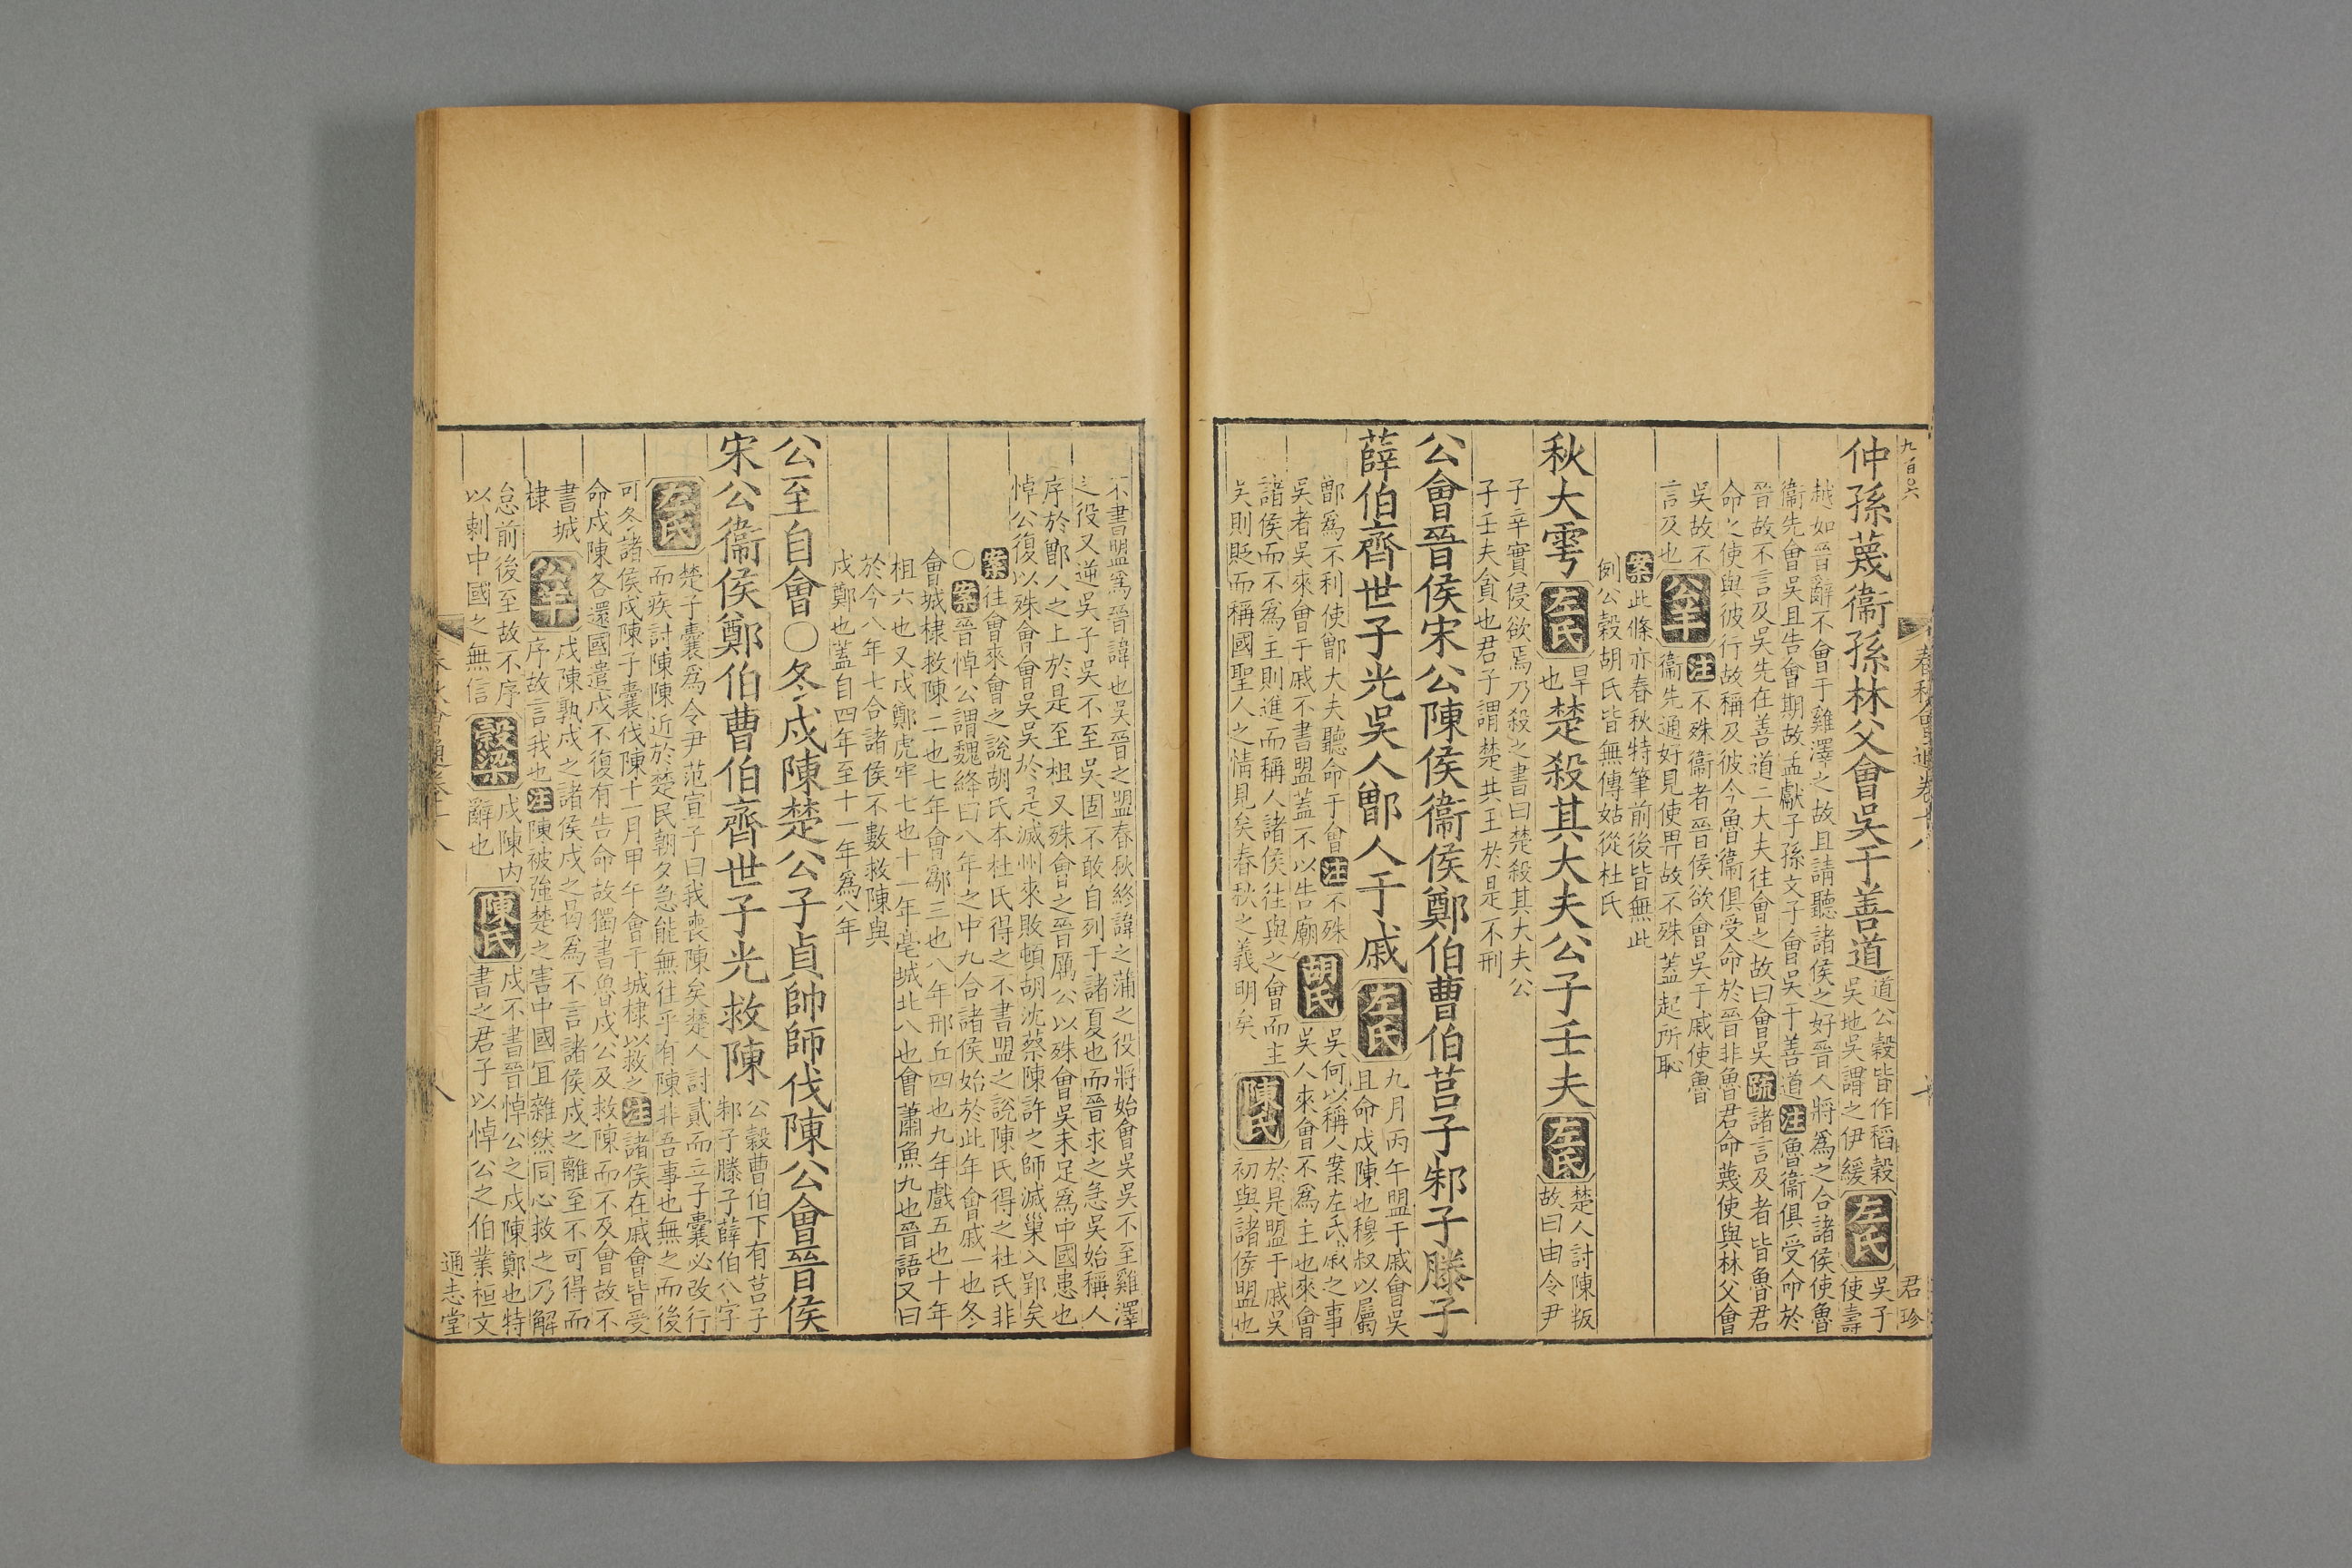 九百六
春秋會通卷十八
君珍
仲孫蔑衞孫林父會吳于善道
道公穀皆作稻穀
吳地吳謂之伊緩
左氏
吳子
使壽
越如晉辭不會于雞澤之故且請聽諸侯之好晉人將爲之合諸侯使魯
衞先會吳且告會期故孟獻子孫文子會吳于善道注魯衞俱受命於
晉故不言及吳先在善道二大夫往會之故曰會吳疏諸言及者皆魯君
命之使與彼行故稱及彼今魯衞俱受命於晉非魯君命蔑使與林父會
吳故不
言及也
公羊
注不殊衞者晉侯欲會吳于戚使魯
衞先通好見使畀故不殊蓋起所恥
案此條亦春秋特筆前後皆無此
例公穀胡氏皆無傳姑從杜氏
秋大雩
左氏
旱
也
楚殺其大夫公子壬夫
左氏
楚人討陳叛
故曰由令尹
子辛實侵欲焉乃殺之書曰楚殺其大夫公
子壬夫貪也君子謂楚共王於是不刑
公會晉侯宋公陳侯衞侯鄭伯曹伯莒子邾子滕子
薛伯齊世子光吳人鄫人于戚
左氏
九月丙午盟于戚會吳
且命戍陳也穆叔以屬
鄫爲不利使鄫大夫聽命于會注不殊
吳者吳來會于戚不書盟蓋不以告廟
胡氏
吳何以稱人案左氏戚之事
吳人來會不爲主也來會
諸侯而不爲主則進而稱人諸侯往與之會而主
吳則貶而稱國聖人之情見矣春秋之義明矣
陳氏
於是盟于戚吳
初與諸侯盟也
不書盟爲晉諱也吳晉之盟春秋終諱之蒲之役將始會吳吳不至雞澤
之役又逆吳子吳不至吳固不敢自列于諸夏也而晉求之急吳始稱人
序於鄫人之上於是至柤又殊會之晉厲公以殊會吳未足爲中國患也
悼公復以殊會會吳吳於是滅州來敗頓胡沈蔡陳許之師滅巢入郢矣
案往會來會之說胡氏本杜氏得之不書盟之說陳氏得之杜氏非
〇案晉悼公謂魏絳曰八年之中九合諸侯始於此年會戚一也冬
會城棣救陳二也七年會鄬三也八年邢丘四也九年戲五也十年
柤六也又戍鄭虎牢七也十一年亳城北八也會蕭魚九也晉語又曰
於今八年七合諸侯不數救陳與
戍鄭也蓋自四年至十一年爲八年
公至自會〇冬戍陳楚公子貞帥師伐陳公會晉侯
宋公衞侯鄭伯曹伯齊世子光救陳
公穀曹伯下有莒子
邾子滕子薛伯八字
左氏
楚子囊爲令尹范宣子曰我喪陳矣楚人討貳而立子囊必改行
而疾討陳陳近於楚民朝夕急能無往乎有陳非吾事也無之而後
可冬諸侯戍陳子囊伐陳十一月甲午會于城棣以救之注諸侯在戚會皆受
命戍陳各還國遣戍不復有告命故獨書魯戍公及救陳而不及會故不
書城
棣
公羊
戍陳孰戍之諸侯戍之曷爲不言諸侯戍之離至不可得而
序故言我也注陳被強楚之害中國宜雜然同心救之乃解
怠前後至故不序
以刺中國之無信
穀梁
戍陳內
辭也
陳氏
戍不書書晉悼公之戍陳鄭也特
書之君子以悼公之伯業桓文
春秋會通卷十八
通志堂